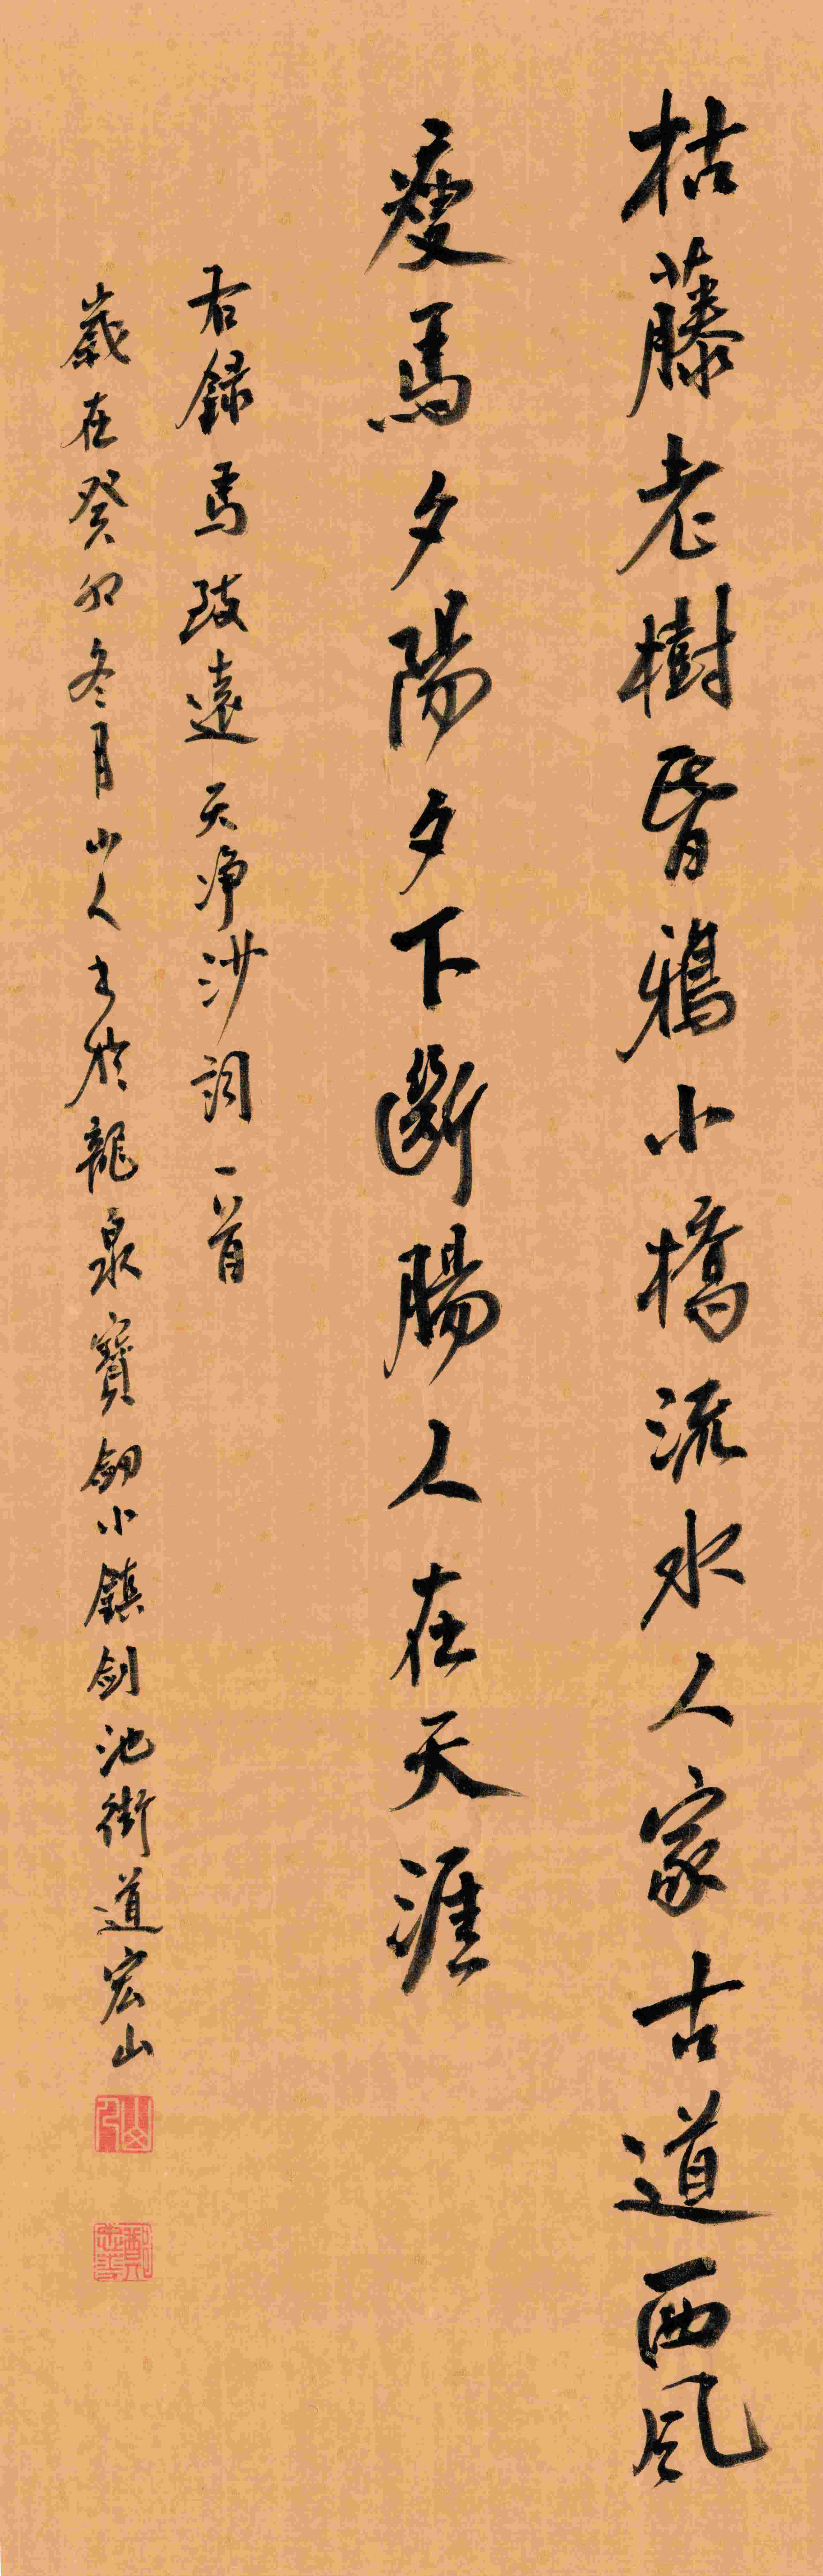 枯藤老樹昏鴉小橋流水人家古道西風
瘦馬夕陽夕下斷腸人在天涯
右録馬致遠天净沙詞一首
歲在癸卯冬月山人書於龍泉寶劒小鎮剑池街道宏山